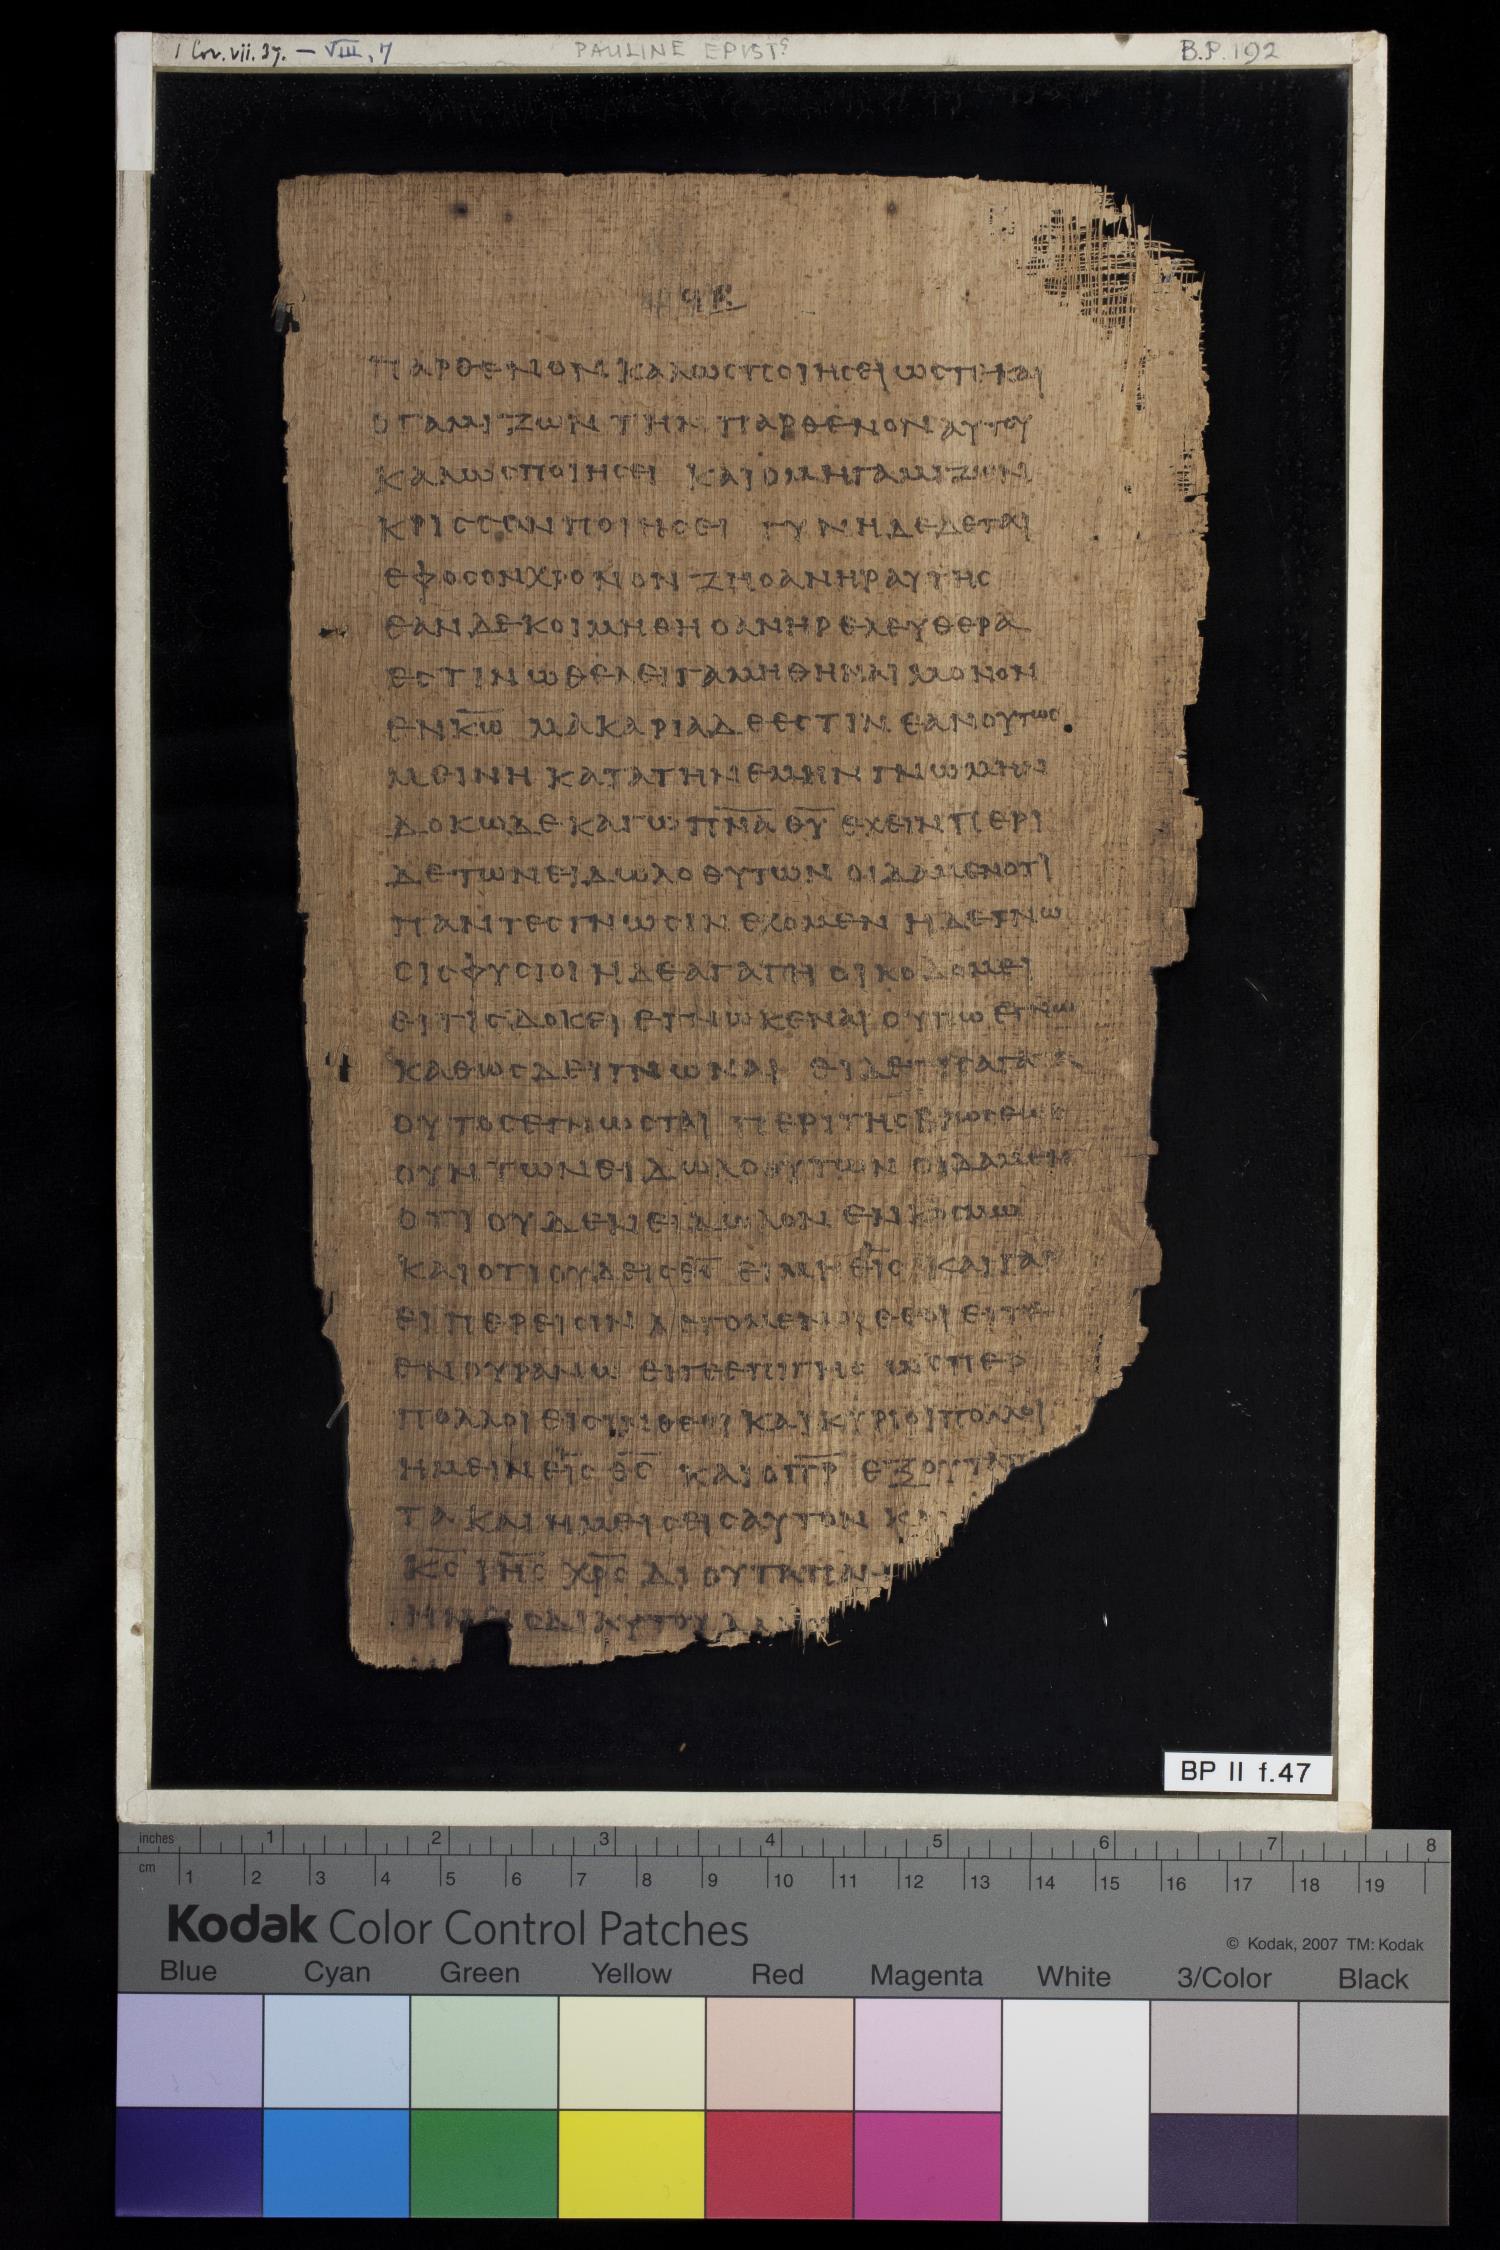 1 Cor. vii. 37. — VIII, 7 PAULINE EPISTS B.P. 192
ΠΑΡΘΕΝΟΝ ΚΑΛΩϹ ΠΟΙΗϹΕΙ ΩϹΤΕ ΚΑΙ
Ο ΓΑΜΙΖΩΝ ΤΗΝ ΠΑΡΘΕΝΟΝ ΑΥΤΟΥ
ΚΑΛΩϹ ΠΟΙΗϹΕΙ ΚΑΙ Ο ΜΗ ΓΑΜΙΖΩΝ
ΚΡΙϹϹΟΝ ΠΟΙΗϹΕΙ ΓΥΝΗ ΔΕΔΕΤΑΙ
ΕΦ ΟϹΟΝ ΧΡΟΝΟΝ ΖΗ Ο ΑΝΗΡ ΑΥΤΗϹ
ΕΑΝ ΔΕ ΚΟΙΜΗΘΗ Ο ΑΝΗΡ ΕΛΕΥΘΕΡΑ
ΕϹΤΙΝ Ω ΘΕΛΕΙ ΓΑΜΗΘΗΝΑΙ ΜΟΝΟΝ
ΕΝ Κ̅Ω̅ ΜΑΚΑΡΙΑ ΔΕ ΕϹΤΙΝ ΕΑΝ ΟΥΤΩϹ
ΜΕΙΝΗ ΚΑΤΑ ΤΗΝ ΕΜΗΝ ΓΝΩΜΗΝ
ΔΟΚΩ ΔΕ ΚΑΓΩ Π̅Ν̅Α̅ Θ̅Υ̅ ΕΧΕΙΝ ΠΕΡΙ
ΔΕ ΤΩΝ ΕΙΔΩΛΟΘΥΤΩΝ ΟΙΔΑΜΕΝ ΟΤΙ
ΠΑΝΤΕϹ ΓΝΩϹΙΝ ΕΧΟΜΕΝ Η ΔΕ ΓΝΩ
ϹΙϹ ΦΥϹΙΟΙ Η ΔΕ ΑΓΑΠΗ ΟΙΚΟΔΟΜΕΙ
ΕΙ ΤΙϹ ΔΟΚΕΙ ΕΓΝΩΚΕΝΑΙ ΟΥΠΩ ΕΓΝΩ
ΚΑΘΩϹ ΔΕΙ ΓΝΩΝΑΙ ΕΙ ΔΕ ΤΙϹ ΑΓΑΠΑ
ΟΥΤΟϹ ΕΓΝΩϹΤΑΙ ΠΕΡΙ ΤΗϹ ΒΡΩϹΕΩϹ
ΟΥΝ ΤΩΝ ΕΙΔΩΛΟΘΥΤΩΝ ΟΙΔΑΜΕΝ
ΟΤΙ ΟΥΔΕΝ ΕΙΔΩΛΟΝ ΕΝ ΚΟϹΜΩ
ΚΑΙ ΟΤΙ ΟΥΔΕΙϹ Θ̅Ϲ̅ ΕΙ ΜΗ ΕΙϹ ΚΑΙ ΓΑΡ
ΕΙΠΕΡ ΕΙϹΙΝ ΛΕΓΟΜΕΝΟΙ ΘΕΟΙ ΕΙΤΕ
ΕΝ ΟΥΡΑΝΩ ΕΙΤΕ ΕΠΙ ΓΗϹ ΩϹΠΕΡ
ΠΟΛΛΟΙ ΕΙϹΙΝ ΘΕΟΙ ΚΑΙ ΚΥΡΙΟΙ ΠΟΛΛΟΙ
ΗΜΕΙΝ ΕΙϹ Θ̅Ϲ̅ ΚΑΙ Ο Π̅Η̅Ρ̅ ΕΞ ΟΥ ΤΑ ΠΑ
ΤΑ ΚΑΙ ΗΜΕΙϹ ΕΙϹ ΑΥΤΟΝ ΚΑΙ
Κ̅Ϲ̅ Ι̅Η̅Ϲ̅ Χ̅Ρ̅Ϲ̅ ΔΙ ΟΥ ΤΑ ΠΑΝ
ΗΜΕΙϹ ΔΙ ΑΥΤΟΥ
BP II f.47
inches 1 2 3 4 5 6 7 8
cm 1 2 3 4 5 6 7 8 9 10 11 12 13 14 15 16 17 18 19
Kodak Color Control Patches
© Kodak, 2007 TM: Kodak
Blue Cyan Green Yellow Red Magenta White 3/Color Black